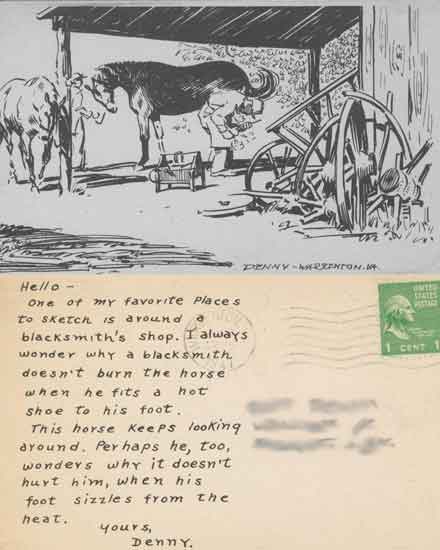 DENNY - WARRENTON. VA.
Hello -
One of my favorite places
to sketch is around a
blacksmith's shop. I always
wonder why a blacksmith
doesn't burn the horse
when he fits a hot
shoe to his foot.
This horse keeps looking
around. Perhaps he, too,
wonders why it doesn't
hurt him, when his
foot sizzles from the
heat.
yours,
Denny.
UNITED
STATES
POSTAGE
1 CENT 1